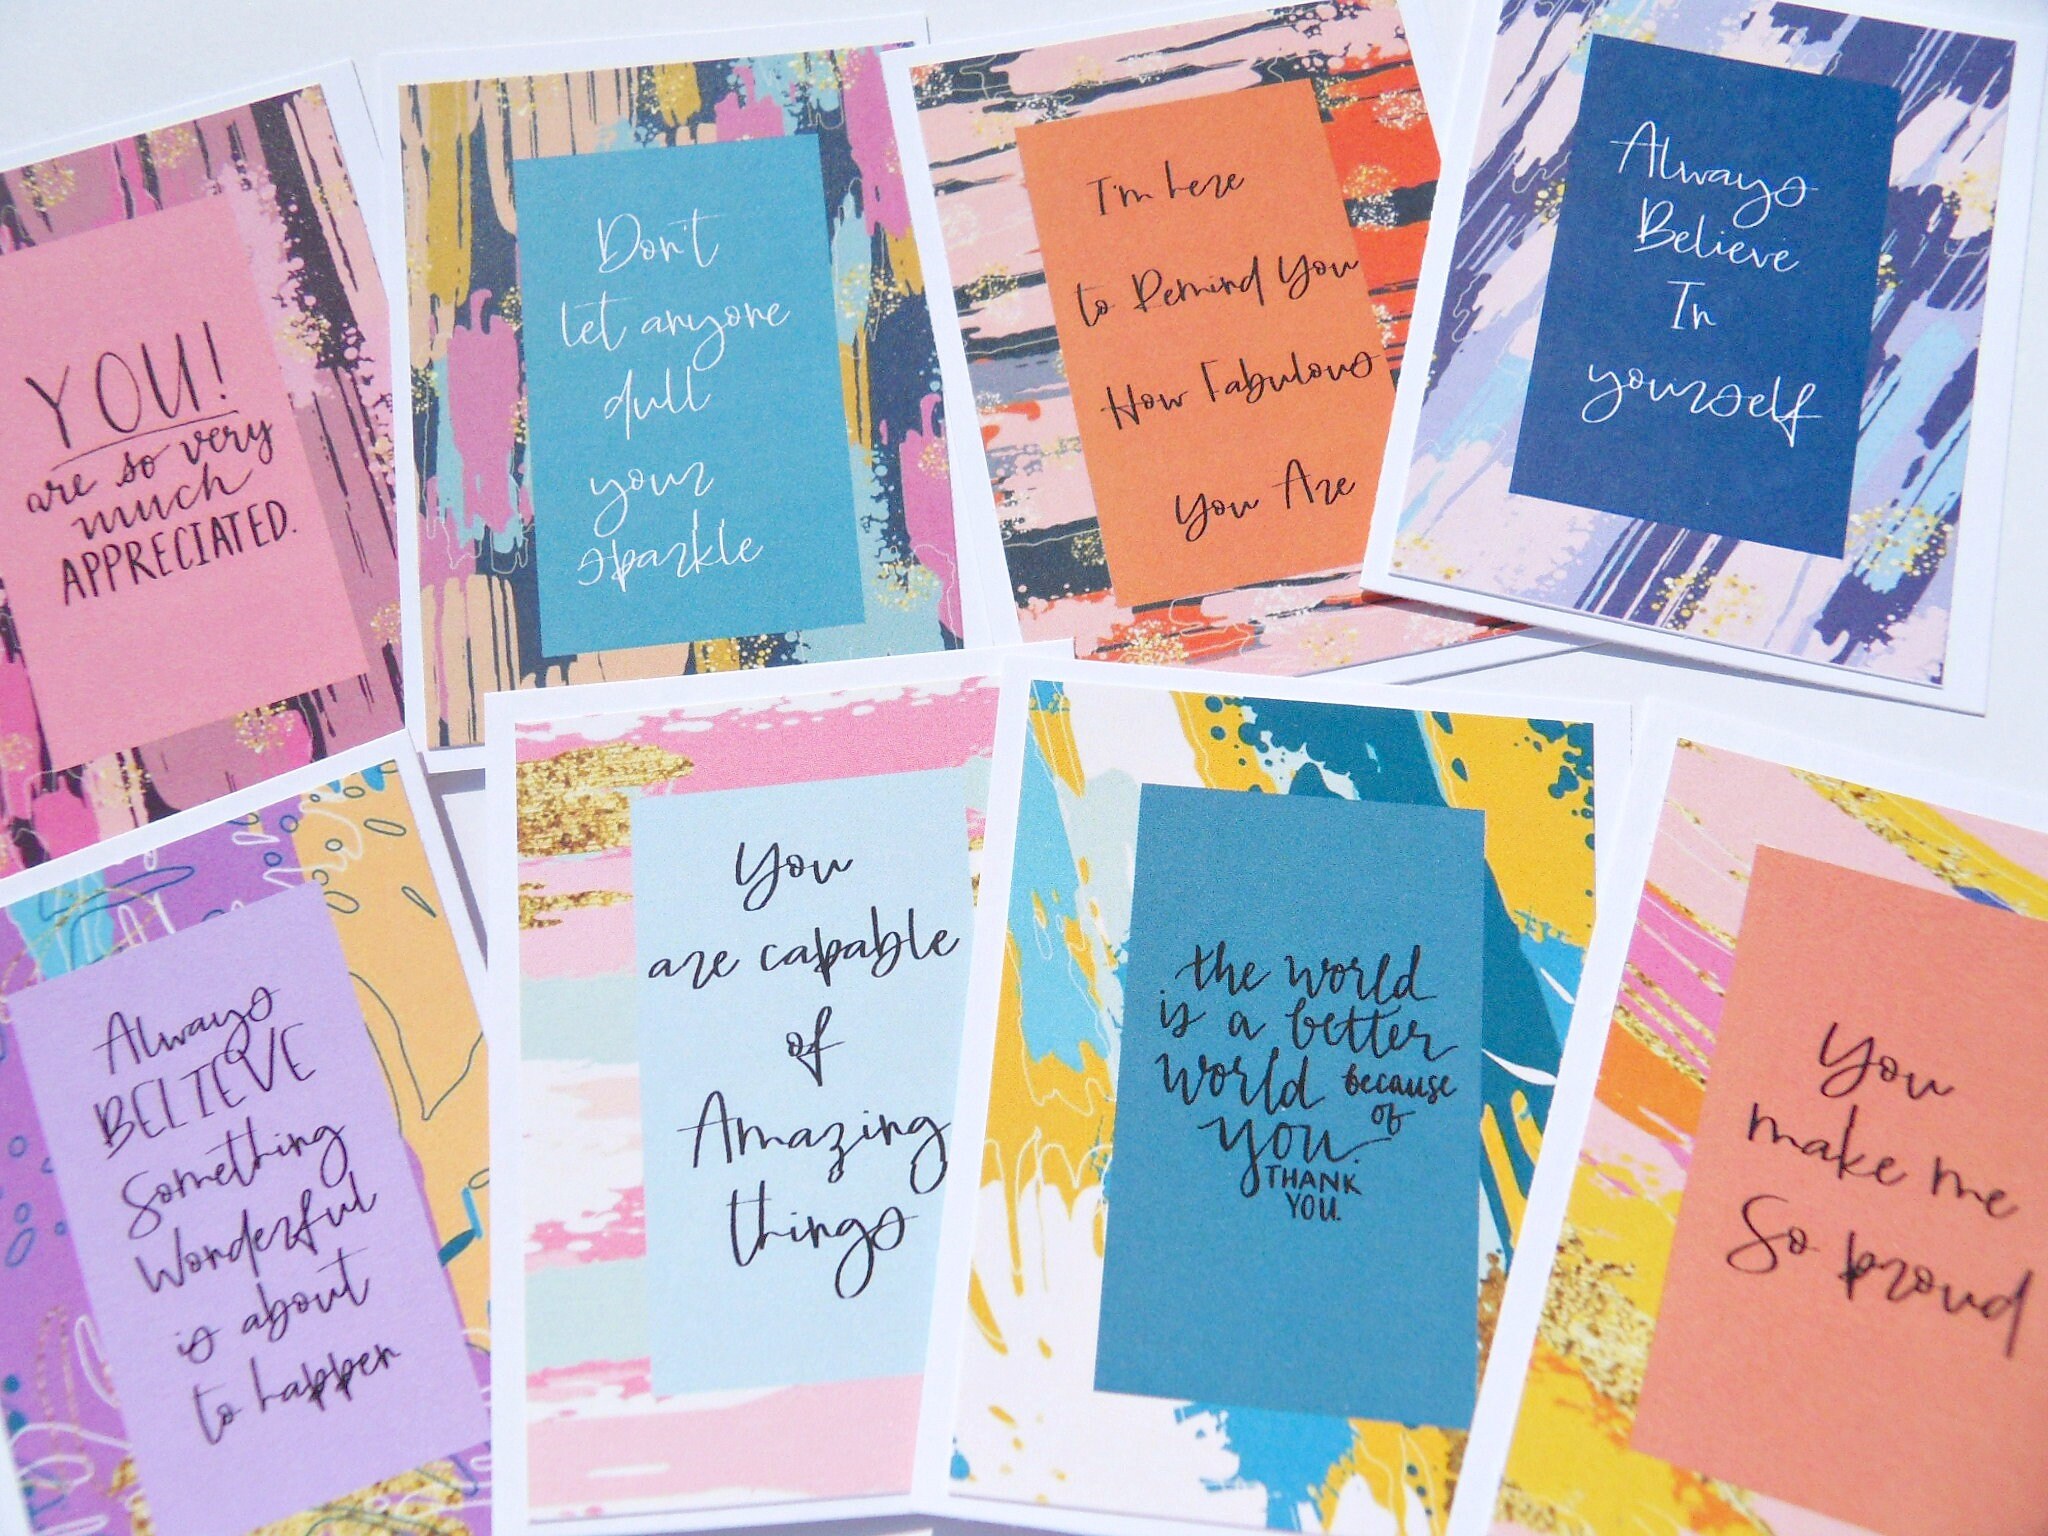 YOU!
are so very
much
APPRECIATED.
Don't
let anyone
dull
your
sparkle
I'm here
to Remind You
How Fabulous
You Are
Always
Believe
In
yourself
Always
BELIEVE
Something
Wonderful
is about
to happen
You
are capable
of
Amazing
things
the world
is a better
world because
of
you.
THANK
YOU.
You
make me
So proud